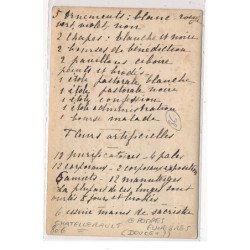 5 Ornements : blanc, rouge
vert, violet, noir
2 chapes : blanche et noire
2 bourses de bénédiction
2 pavillons ciboire
peints et brodés
1 étole pastorale blanche
1 étole pastorale noire
1 étole confession
1 étole administration
1 bourse malade
Fleurs artificielles
12 purificatoires 6 pales
12 corporaux 2 corporaux exposition
6 amicts 12 manuterges
La plupart de ces linges sont
ourlés à jours et brodés
6 essuie mains de sacristie
CHATELLERAULT
86